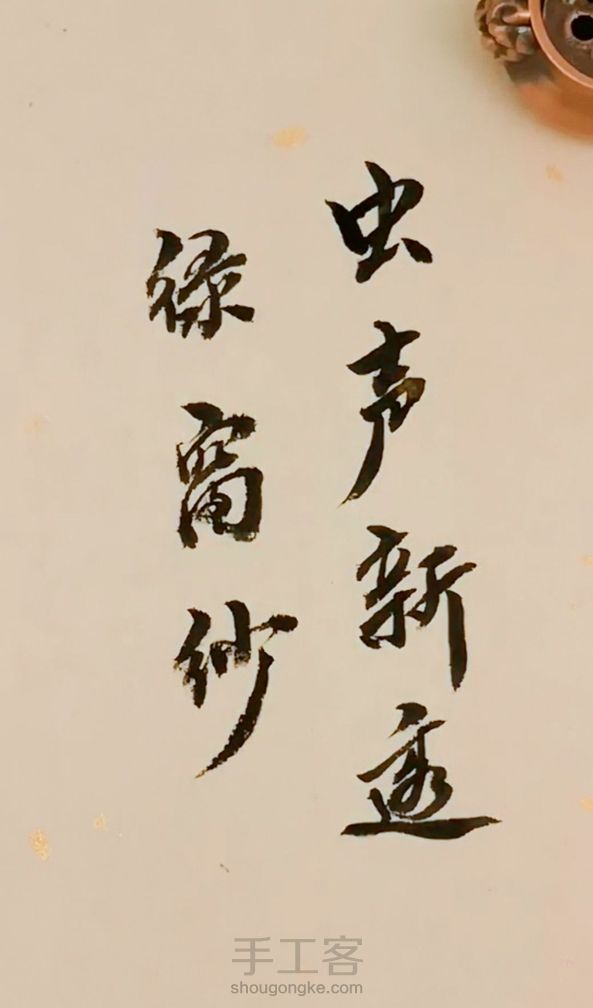 虫声新透
绿窗纱
手工客
shougongke.com